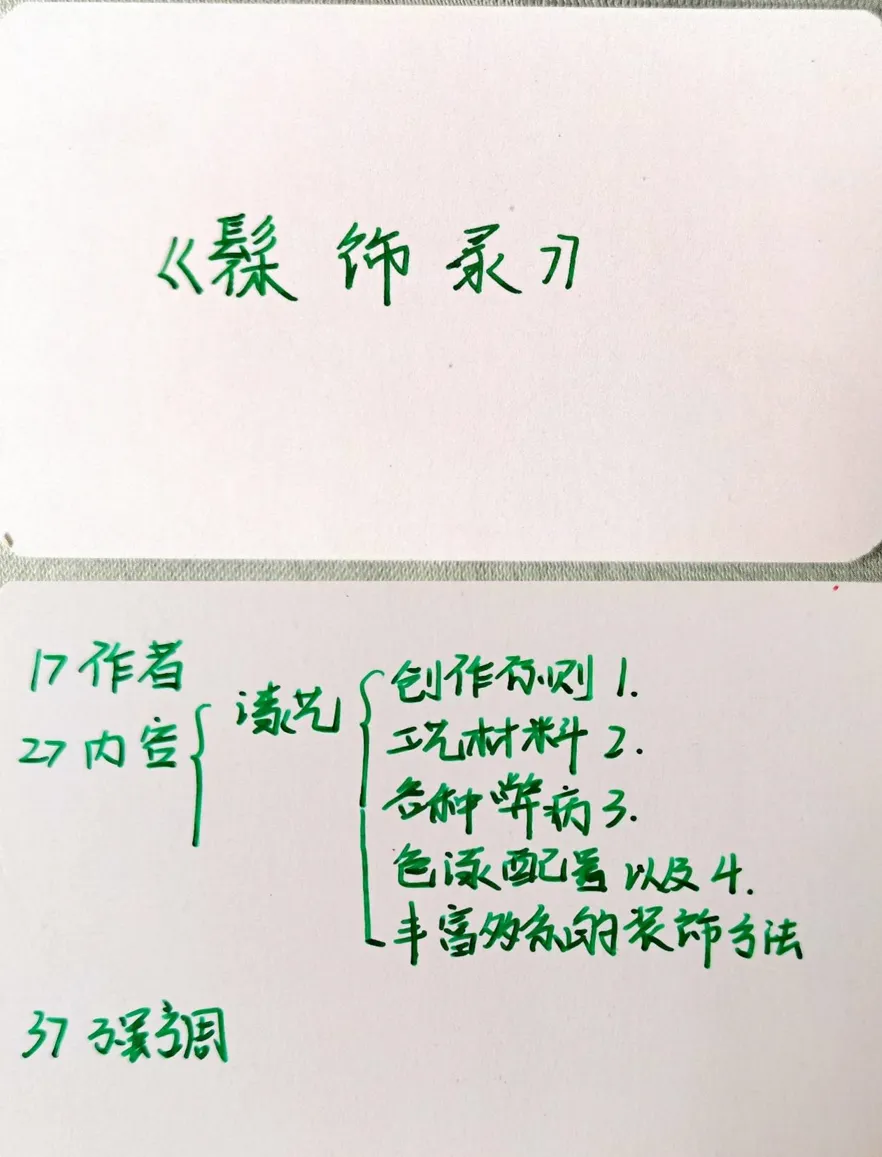 《髹饰录》
1> 作者
2> 内容 { 漆艺 {
创作原则 1.
工艺材料 2.
各种弊病 3.
色漆配置 以及 4.
丰富多彩的装饰方法
3> 强调